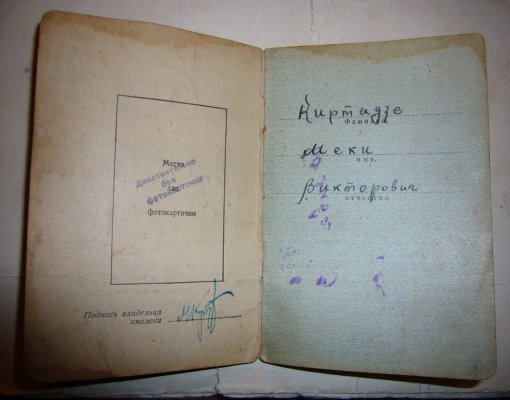 Место
Действительно
без
фотокарточки
для
фотокарточки
Подпись владельца
книжки
Киртадзе
Фамилия,
Меки
имя,
Викторович
отчество